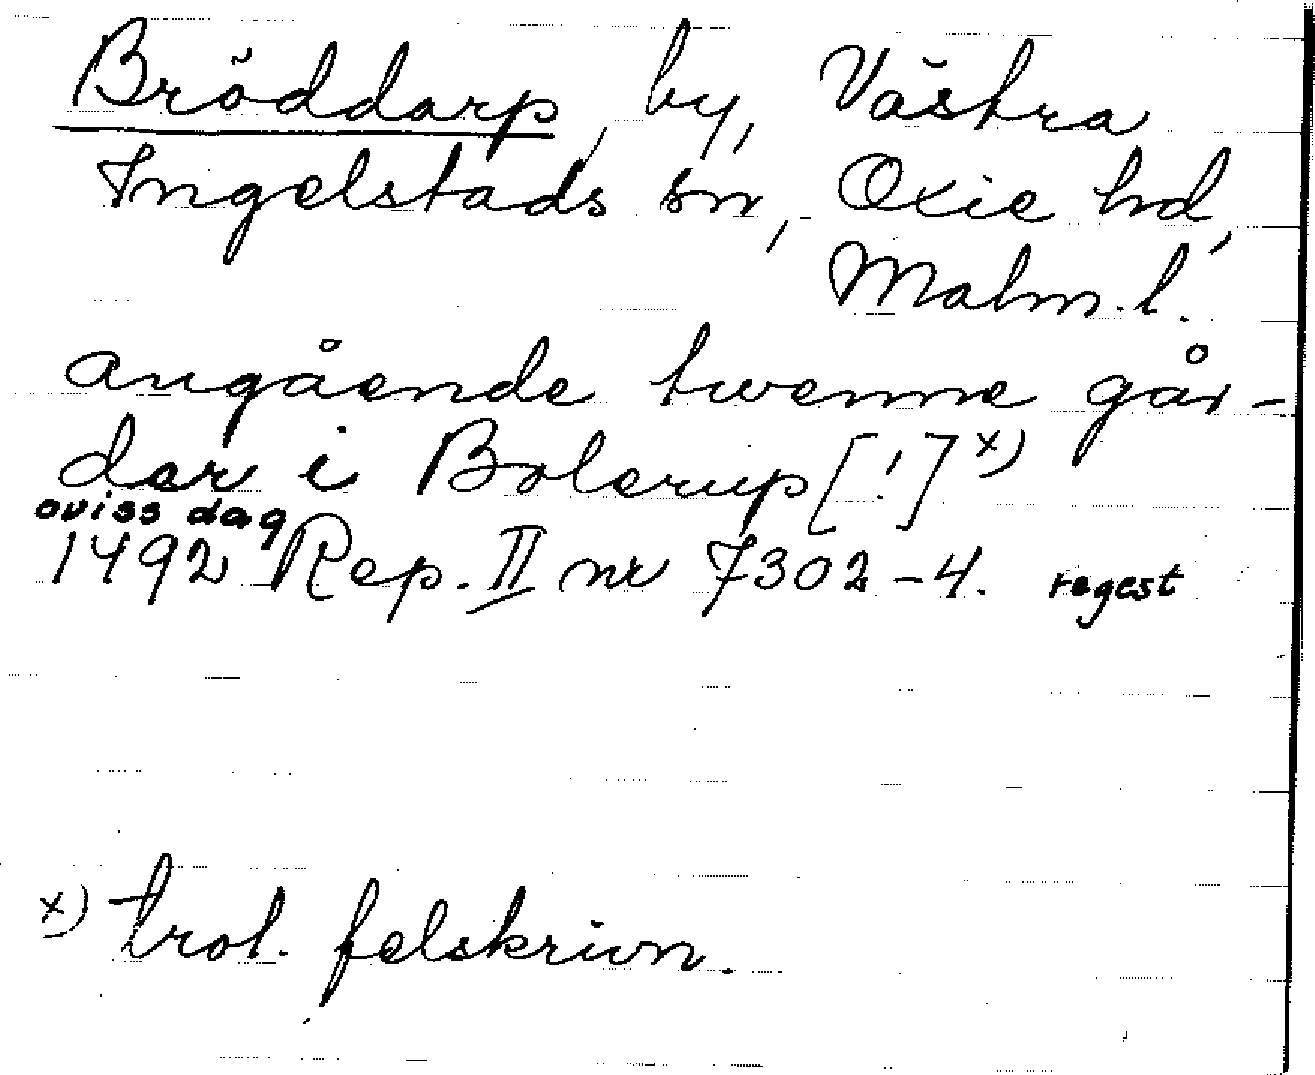 Bröddarp, by, Västra
Ingelstads sn, Oxie hd,
Malm. l.
angående twenne går-
dar i Bolerup [!] x)
oviss dag
1492 Rep. II nr 7302-4. regest
x) trol. felskrivn.